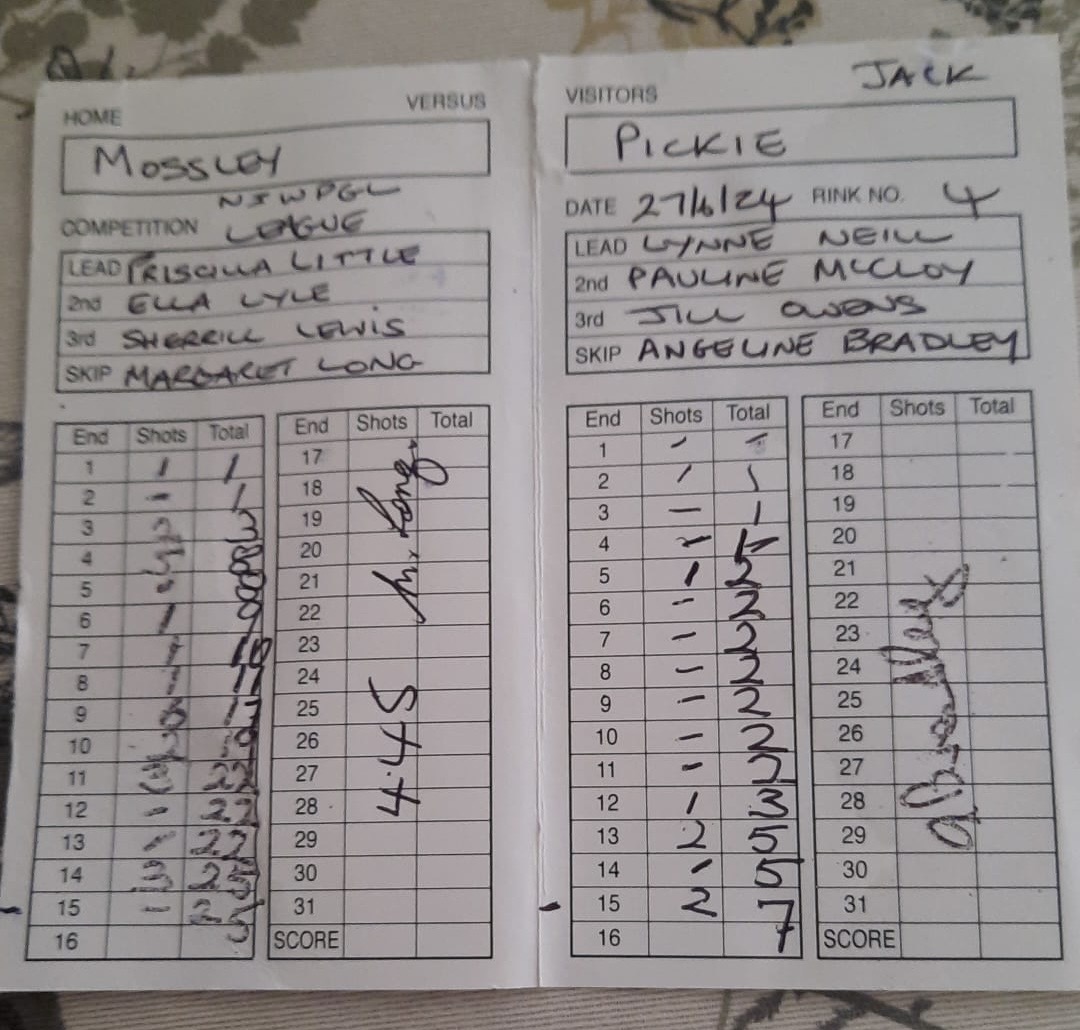 HOME
VERSUS
MOSSLEY
NIWPGL
COMPETITION LEAGUE
LEAD PRISCILLA LITTLE
2nd ELLA LYLE
3rd SHERRILL LEWIS
SKIP MARGARET LONG
End Shots Total
1 1 1
2 - 1
3
4
5
6
7
8
9
10
11 22
12 - 22
13 - 22
14 3 25
15 - 25
16
End Shots Total
17
18
19
20
21
22
23
24
25
26
27
28
29
30
31
SCORE
M. Long
4.45
JACK
VISITORS
PICKIE
DATE 27/6/24 RINK NO. 4
LEAD LYNNE NEILL
2nd PAULINE MCCLOY
3rd JILL OWENS
SKIP ANGELINE BRADLEY
End Shots Total
1 - -
2 1 1
3 - 1
4 -
5 1 2
6 - 2
7 - 2
8 - 2
9 - 2
10 - 2
11 - 2
12 1 3
13 2 5
14 - 5
15 2 7
16
End Shots Total
17
18
19
20
21
22
23
24
25
26
27
28
29
30
31
SCORE
A Bradley